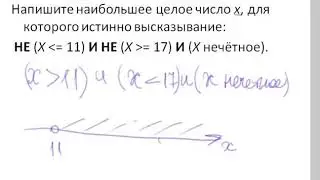 Напишите наибольшее целое число x, для
которого истинно высказывание:
НЕ (X <= 11) И НЕ (X >= 17) И (X нечётное).
(x>11) и (x<17) и (x нечетное)
11 x